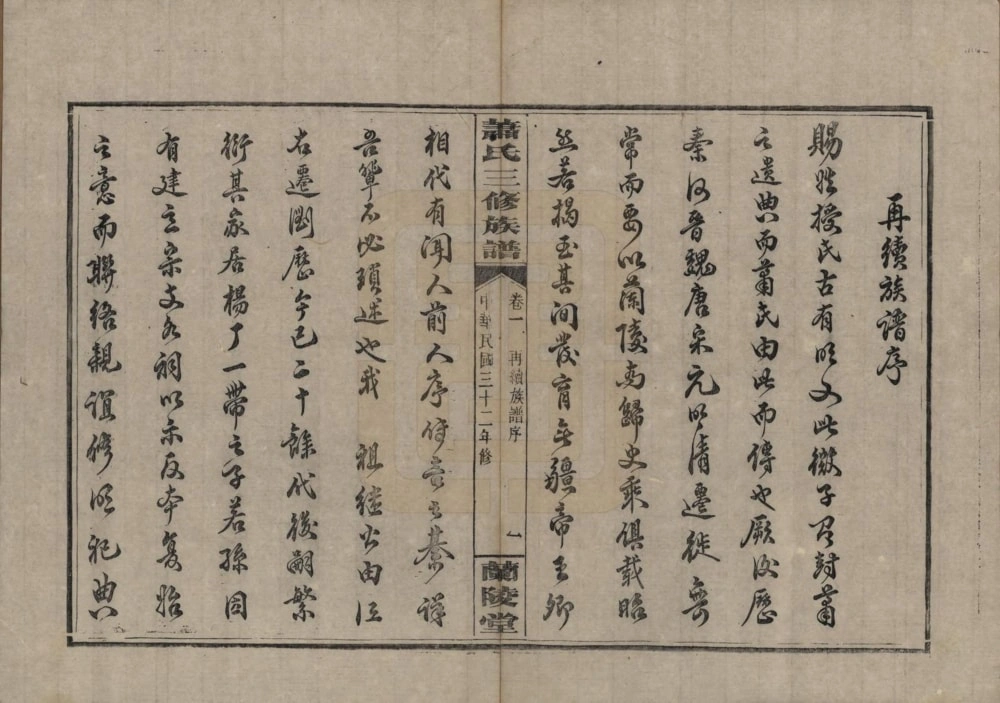 再續族譜序
賜姓授氏古有明文此微子召封蕭
之遺典而蕭氏由此而傳也厥後歷
秦漢晉魏唐宋元明清遷徙無
常而要以蘭陵為歸史乘俱載昭
然若揭至其間發育無疆帝王卿
蕭氏三修族譜
卷一 再續族譜序 一
中華民國三十二年修
蘭陵堂
相代有聞人前人序傳言之綦詳
吾輩不必瑣述也我 祖继公由江
右遷閩歷今已二十餘代後嗣繁
衍其家居楊了一帶之子若孫因
有建立宗支各祠以示反本复始
之意而聯絡親誼修明祀典